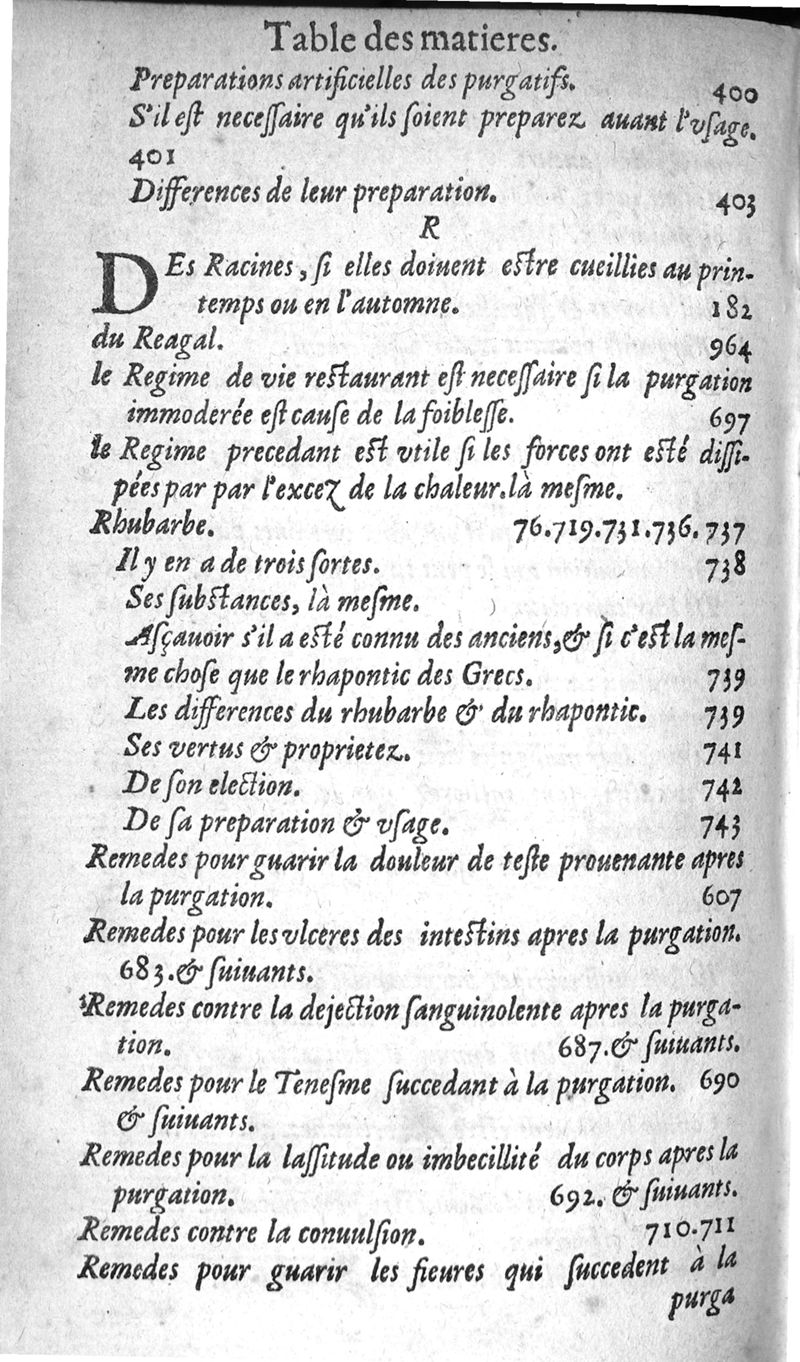 Table des matieres.
Preparations artificielles des purgatifs. 400
S'il est necessaire qu'ils soient preparez auant l'vsage.
401
Differences de leur preparation. 403
R
DEs Racines, si elles doiuent estre cueillies au prin-
temps ou en l'automne. 182
du Reagal. 964
le Regime de vie restaurant est necessaire si la purgation
immoderée est cause de la foiblesse. 697
le Regime precedant est vtile si les forces ont esté dissi-
pées par par l'excez de la chaleur. là mesme.
Rhubarbe. 76.719.731.736.737
Il y en a de trois sortes. 738
Ses substances, là mesme.
Asçauoir s'il a esté connu des anciens, & si c'est la mes-
me chose que le rhapontic des Grecs. 739
Les differences du rhubarbe & du rhapontic. 739
Ses vertus & proprietez. 741
De son election. 742
De sa preparation & vsage. 743
Remedes pour guarir la douleur de teste prouenante apres
la purgation. 607
Remedes pour les vlceres des intestins apres la purgation.
683. & suiuants.
Remedes contre la dejection sanguinolente apres la purga-
tion. 687. & suiuants.
Remedes pour le Tenesme succedant à la purgation. 690
& suiuants.
Remedes pour la lassitude ou imbecillité du corps apres la
purgation. 692. & suiuants.
Remedes contre la conuulsion. 710.711
Remedes pour guarir les fieures qui succedent à la
purga